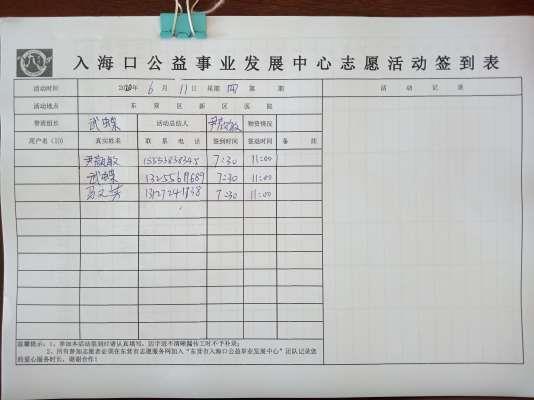 入海口公益事业发展中心志愿活动签到表
活动时间 2020年 6 月 11 日 星期 四 第 期 活动记录
活动地点 东营区新区医院
带班组长 武蝶 活动总结人 物资情况
用户名(ID) 真实姓名 联系电话 签到时间 签退时间 备注
7:30 11:00
武蝶 7:30 11:00
7:30 11:00
温馨提示:1、参加本活动签到时请认真填写,因字迹不清晰漏传工时不予补录;
2、所有参加志愿者必须在东营市志愿服务网加入“东营市入海口公益事业发展中心”团队记录您
的爱心服务时长,谢谢合作!